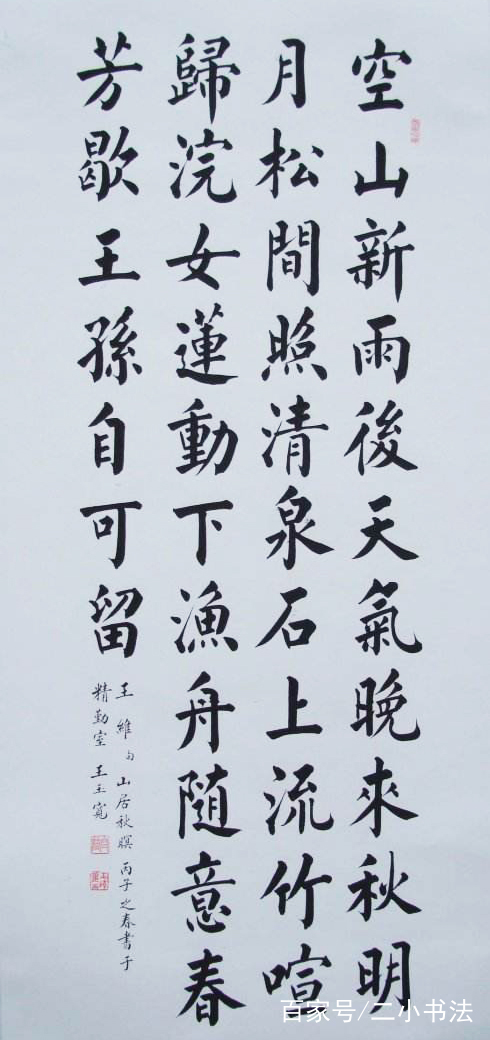 空山新雨後天氣晚來秋明
月松間照清泉石上流竹喧
歸浣女蓮動下漁舟随意春
芳歇王孫自可留
王維句山居秋暝丙子之春書于
精勤室王玉寬
百家号/二小书法